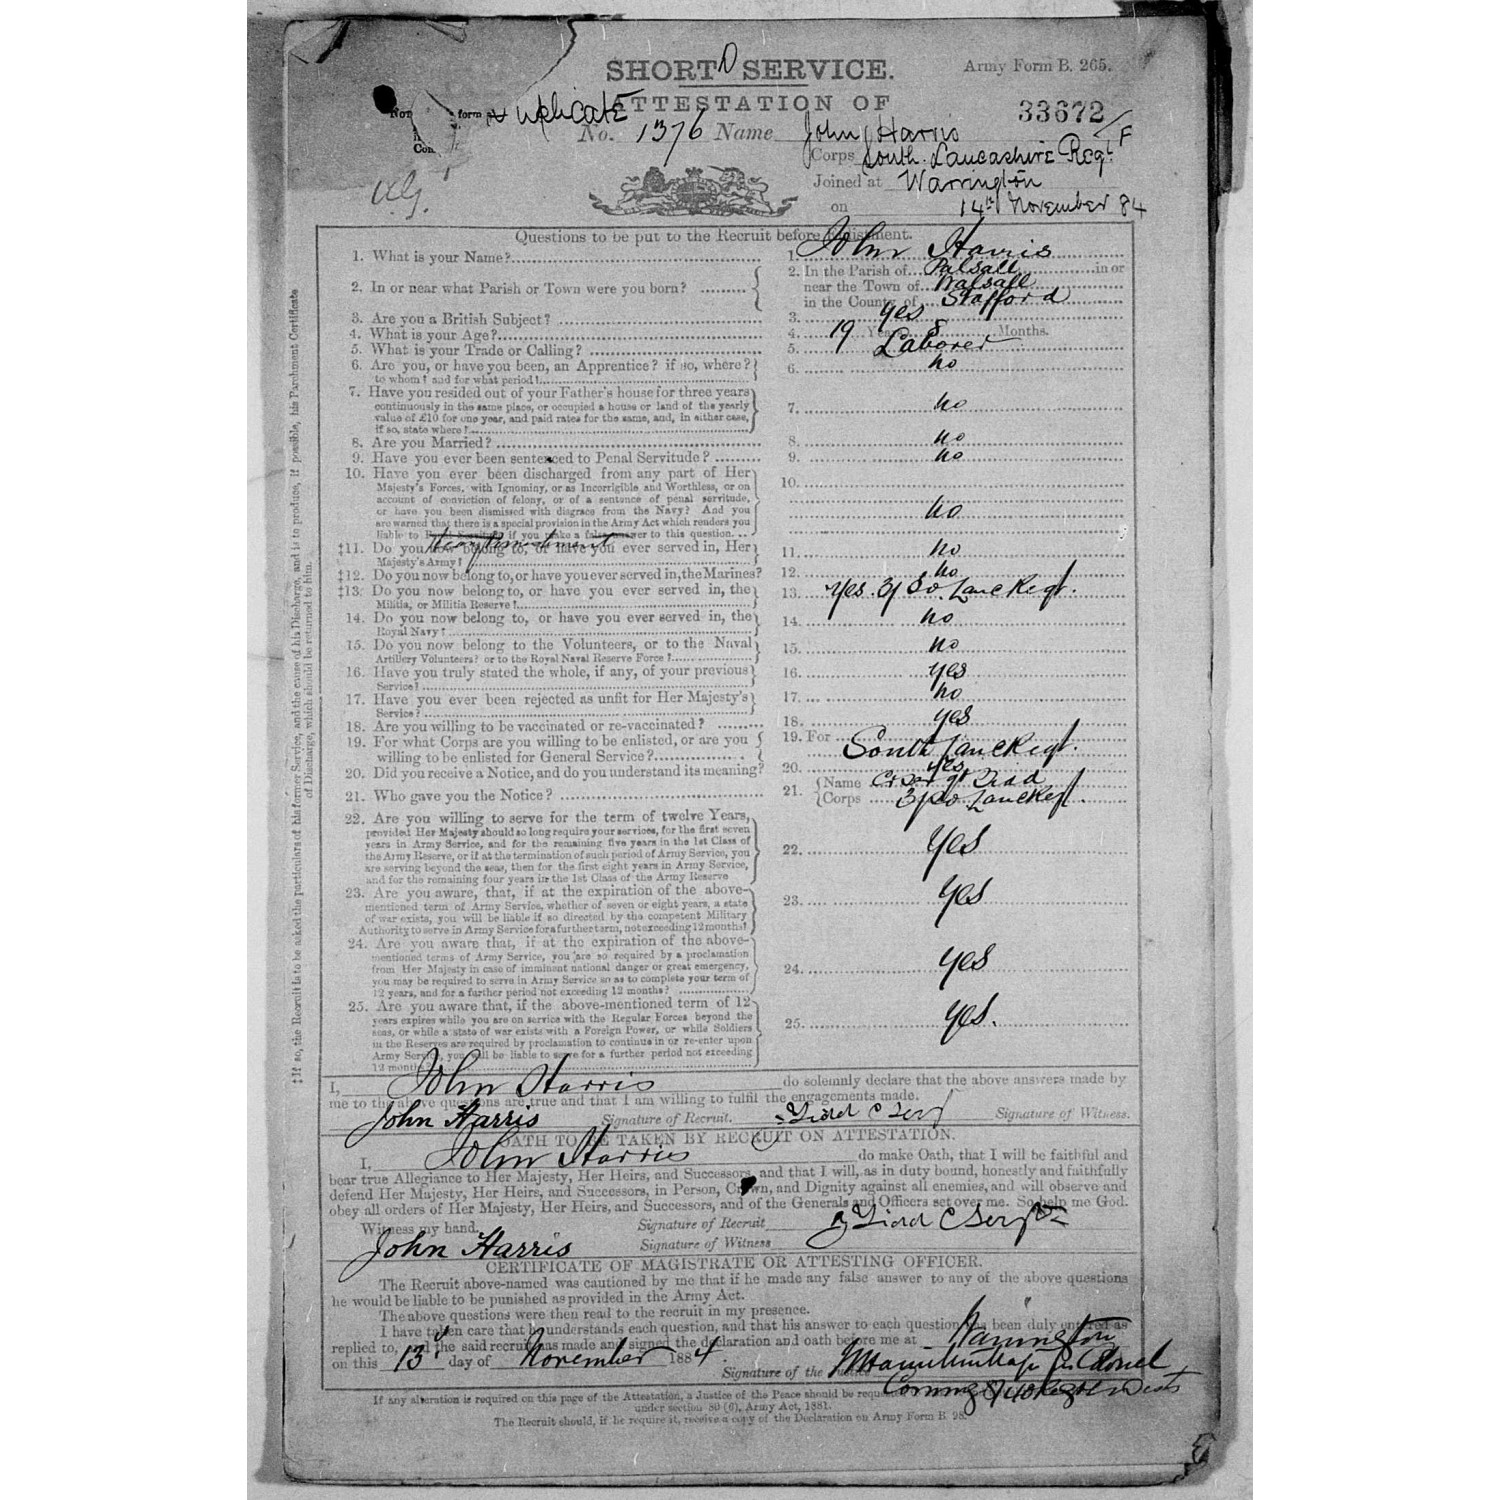 SHORT D SERVICE.
Army Form B. 265.
ATTESTATION OF
form
Duplicate
33672/F
No. 1376 Name John Harris
Corps South Lancashire Regt
Joined at Warrington
on 14th November 84
Questions to be put to the Recruit before Enlistment.
1. What is your Name? 1. John Harris
2. In or near what Parish or Town were you born? 2. In the Parish of Walsall in or
near the Town of Walsall
in the County of Stafford
3. Are you a British Subject? 3. Yes
4. What is your Age? 4. 19 Years 8 Months.
5. What is your Trade or Calling? 5. Laborer
6. Are you, or have you been, an Apprentice? if so, where? 6. no
to whom? and for what period?
7. Have you resided out of your Father's house for three years
continuously in the same place, or occupied a house or land of the yearly
value of £10 for one year, and paid rates for the same, and, in either case,
if so, state where? 7. no
8. Are you Married? 8. no
9. Have you ever been sentenced to Penal Servitude? 9. no
10. Have you ever been discharged from any part of Her
Majesty's Forces, with Ignominy, or as Incorrigible and Worthless, or on
account of conviction of felony, or of a sentence of penal servitude,
or have you been dismissed with disgrace from the Navy? And you
are warned that there is a special provision in the Army Act which renders you
liable to Penal Servitude if you make a false answer to this question. 10. no
‡11. Do you now belong to, or have you ever served in, Her
Majesty's Army? 11. no
‡12. Do you now belong to, or have you ever served in, the Marines? 12. no
‡13. Do you now belong to, or have you ever served in, the
Militia, or Militia Reserve? 13. Yes. 3/ So. Lanc Regt.
14. Do you now belong to, or have you ever served in, the
Royal Navy? 14. no
15. Do you now belong to the Volunteers, or to the Naval
Artillery Volunteers? or to the Royal Naval Reserve Force? 15. no
16. Have you truly stated the whole, if any, of your previous
Service? 16. yes
17. Have you ever been rejected as unfit for Her Majesty's
Service? 17. no
18. Are you willing to be vaccinated or re-vaccinated? 18. yes
19. For what Corps are you willing to be enlisted, or are you
willing to be enlisted for General Service? 19. For South Lanc Regt.
20. Did you receive a Notice, and do you understand its meaning? 20. yes
21. Who gave you the Notice? 21. Name
Corps 3/ So. Lanc Regt.
22. Are you willing to serve for the term of twelve Years,
provided Her Majesty should so long require your services, for the first seven
years in Army Service, and for the remaining five years in the 1st Class of
the Army Reserve, or if at the termination of such period of Army Service, you
are serving beyond the seas, then for the first eight years in Army Service,
and for the remaining four years in the 1st Class of the Army Reserve 22. Yes
23. Are you aware, that, if at the expiration of the above-
mentioned term of Army Service, whether of seven or eight years, a state
of war exists, you will be liable if so directed by the competent Military
Authority to serve in Army Service for a further term, not exceeding 12 months? 23. Yes
24. Are you aware that, if at the expiration of the above-
mentioned terms of Army Service, you are so required by a proclamation
from Her Majesty in case of imminent national danger or great emergency,
you may be required to serve in Army Service so as to complete your term of
12 years, and for a further period not exceeding 12 months? 24. yes
25. Are you aware that, if the above-mentioned term of 12
years expires while you are on service with the Regular Forces beyond the
seas, or while a state of war exists with a Foreign Power, or while Soldiers
in the Reserves are required by proclamation to continue in or re-enter upon
Army Service, you will be liable to serve for a further period not exceeding
12 months 25. yes.
‡ If so, the Recruit is to be asked the particulars of his former Service, and the cause of his Discharge, and is to produce, if possible, his Parchment Certificate
of Discharge, which should be returned to him.
I, John Harris do solemnly declare that the above answers made by
me to the above questions are true and that I am willing to fulfil the engagements made.
John Harris Signature of Recruit. Signature of Witness.
OATH TO BE TAKEN BY RECRUIT ON ATTESTATION.
I, John Harris do make Oath, that I will be faithful and
bear true Allegiance to Her Majesty, Her Heirs, and Successors, and that I will, as in duty bound, honestly and faithfully
defend Her Majesty, Her Heirs, and Successors, in Person, Crown, and Dignity against all enemies, and will observe and
obey all orders of Her Majesty, Her Heirs, and Successors, and of the Generals and Officers set over me. So help me God.
Witness my hand. Signature of Recruit
John Harris Signature of Witness
CERTIFICATE OF MAGISTRATE OR ATTESTING OFFICER.
The Recruit above-named was cautioned by me that if he made any false answer to any of the above questions
he would be liable to be punished as provided in the Army Act.
The above questions were then read to the recruit in my presence.
I have taken care that he understands each question, and that his answer to each question has been duly entered as
replied to, and the said recruit has made and signed the declaration and oath before me at Warrington
on this 13th day of November 1884.
Signature of the Justice
Colonel
If any alteration is required on this page of the Attestation, a Justice of the Peace should be
under section 80 (6), Army Act, 1881.
The Recruit should, if he require it, receive a copy of the Declaration on Army Form B. 98.